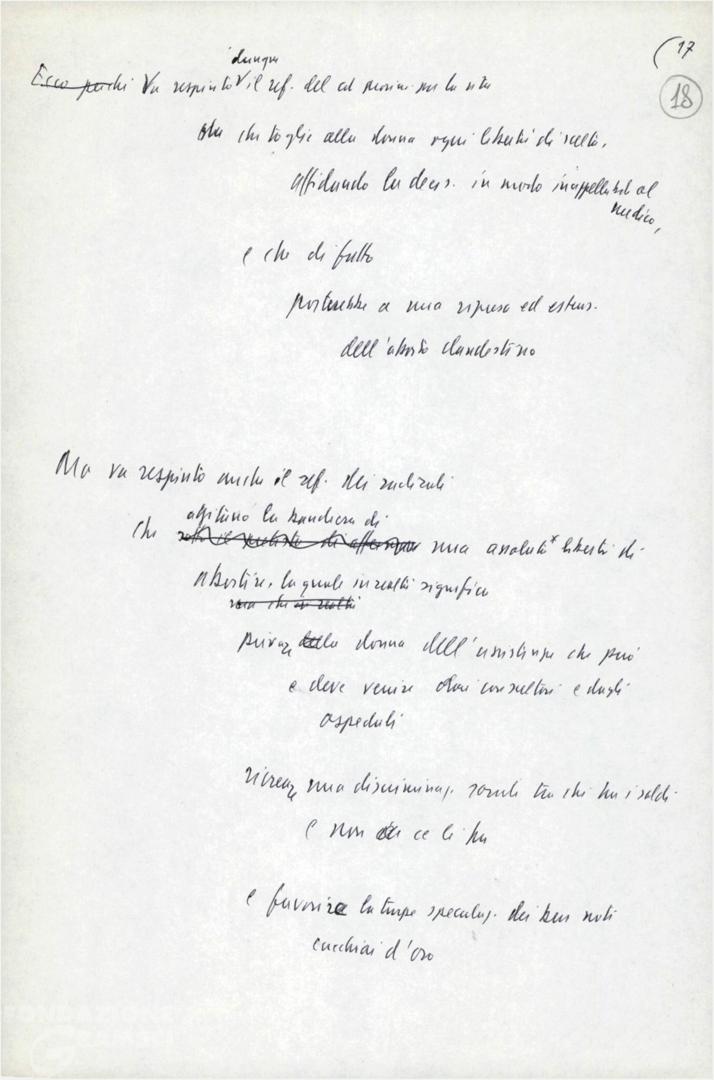 (17
18
dunque
Ecco perché Va respinto il ref. del movim. per la vita
che toglie alla donna ogni libertà di scelta,
affidando la decis. in modo inappellabile al
medico,
e che di fatto
porterebbe a una ripresa ed estens.
dell'aborto clandestino
Ma va respinto anche il ref. dei radicali
agitano la bandiera di
che una assoluta* libertà di
abortire, la quale in realtà significa
ma che in realtà
privare la donna dell'assistenza che può
e deve venire dai consultori e dagli
ospedali
ricreare una discriminaz. sociale tra chi ha i soldi
e non ce li ha
e favorire la turpe speculaz. dei ben noti
cucchiai d'oro
FONDAZIONE